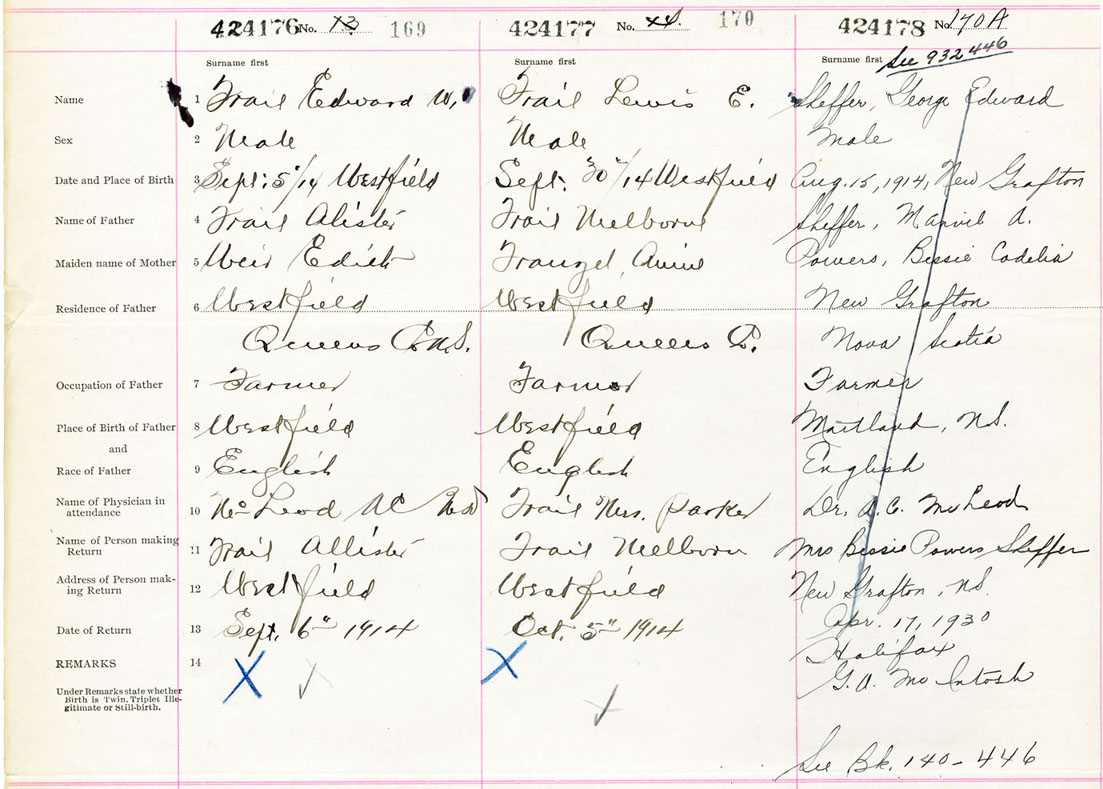 424176 No. 13 169 424177 No. x4. 170 424178 No. 170A
See 932446
Surname first Surname first Surname first
Name 1 Trail Edward W. Trail Lewis E. Sheffer, George Edward
Sex 2 Male Male Male
Date and Place of Birth 3 Sept. 5"/14 Westfield Sept. 30"/14 Westfield Aug. 15, 1914, New Grafton
Name of Father 4 Trail Alister Trail Melborne Sheffer, A.
Maiden name of Mother 5 Weir Edith Annie Powers, Bessie Cadelia
Residence of Father 6 Westfield Westfield New Grafton
Queens Co. N.S. Queens Co. Nova Scotia
Occupation of Father 7 Farmer Farmer Farmer
Place of Birth of Father 8 Westfield Westfield Maitland, N.S.
and
Race of Father 9 English English English
Name of Physician in
attendance 10 McLeod AC Trail Mrs. Parker Dr. A.C. McLeod
Name of Person making
Return 11 Trail Allister Trail Melborn Mrs Bessie Powers Sheffer
Address of Person mak-
ing Return 12 Westfield Westfield New Grafton, N.S.
Date of Return 13 Sept. 6" 1914 Oct. 5" 1914 Apr. 17, 1930
REMARKS 14 Halifax
G.A. McIntosh
Under Remarks state whether
Birth is Twin, Triplet Ille-
gitimate or Still-birth.
See Bk. 140-446